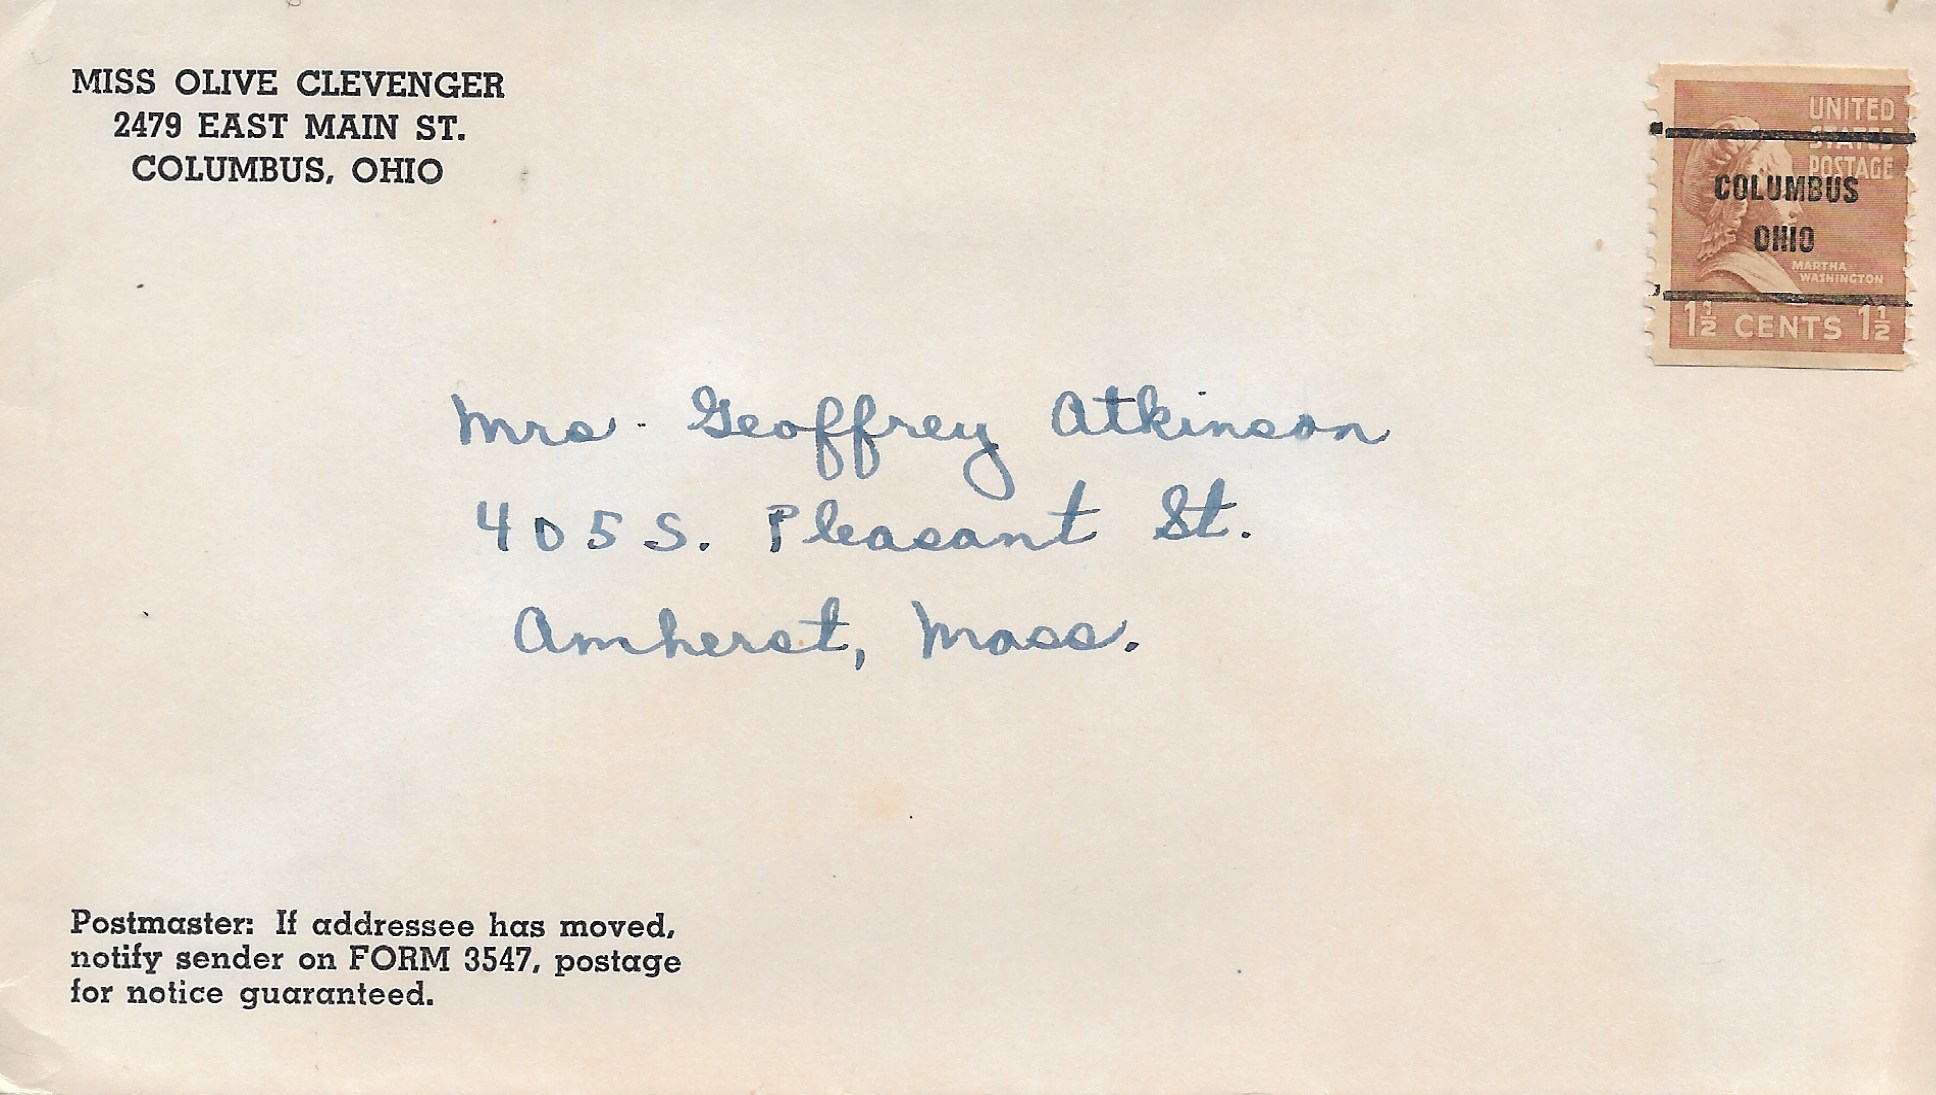 MISS OLIVE CLEVENGER
2479 EAST MAIN ST.
COLUMBUS, OHIO
UNITED
STATES
POSTAGE
COLUMBUS
OHIO
MARTHA
WASHINGTON
1½ CENTS 1½
Mrs. Geoffrey Atkinson
405 S. Pleasant St.
Amherst, Mass.
Postmaster: If addressee has moved,
notify sender on FORM 3547, postage
for notice guaranteed.